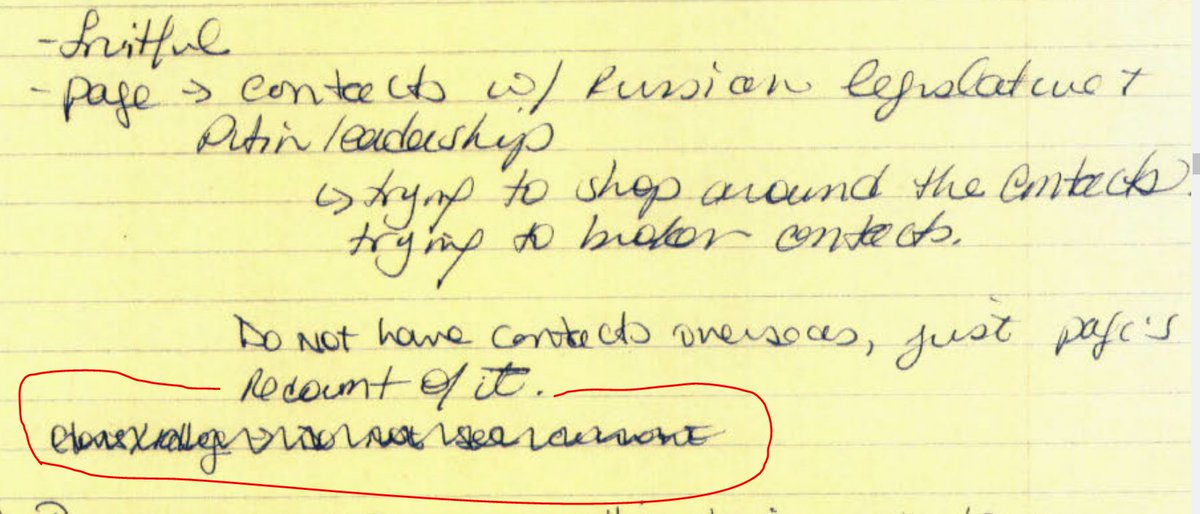 - fruitful
- page → contacts w/ Russian legislature +
Putin leadership
↳ trying to shop around the contacts.
trying to broker contacts.
Do Not have contacts overseas, just page's
Recount of it.
not see